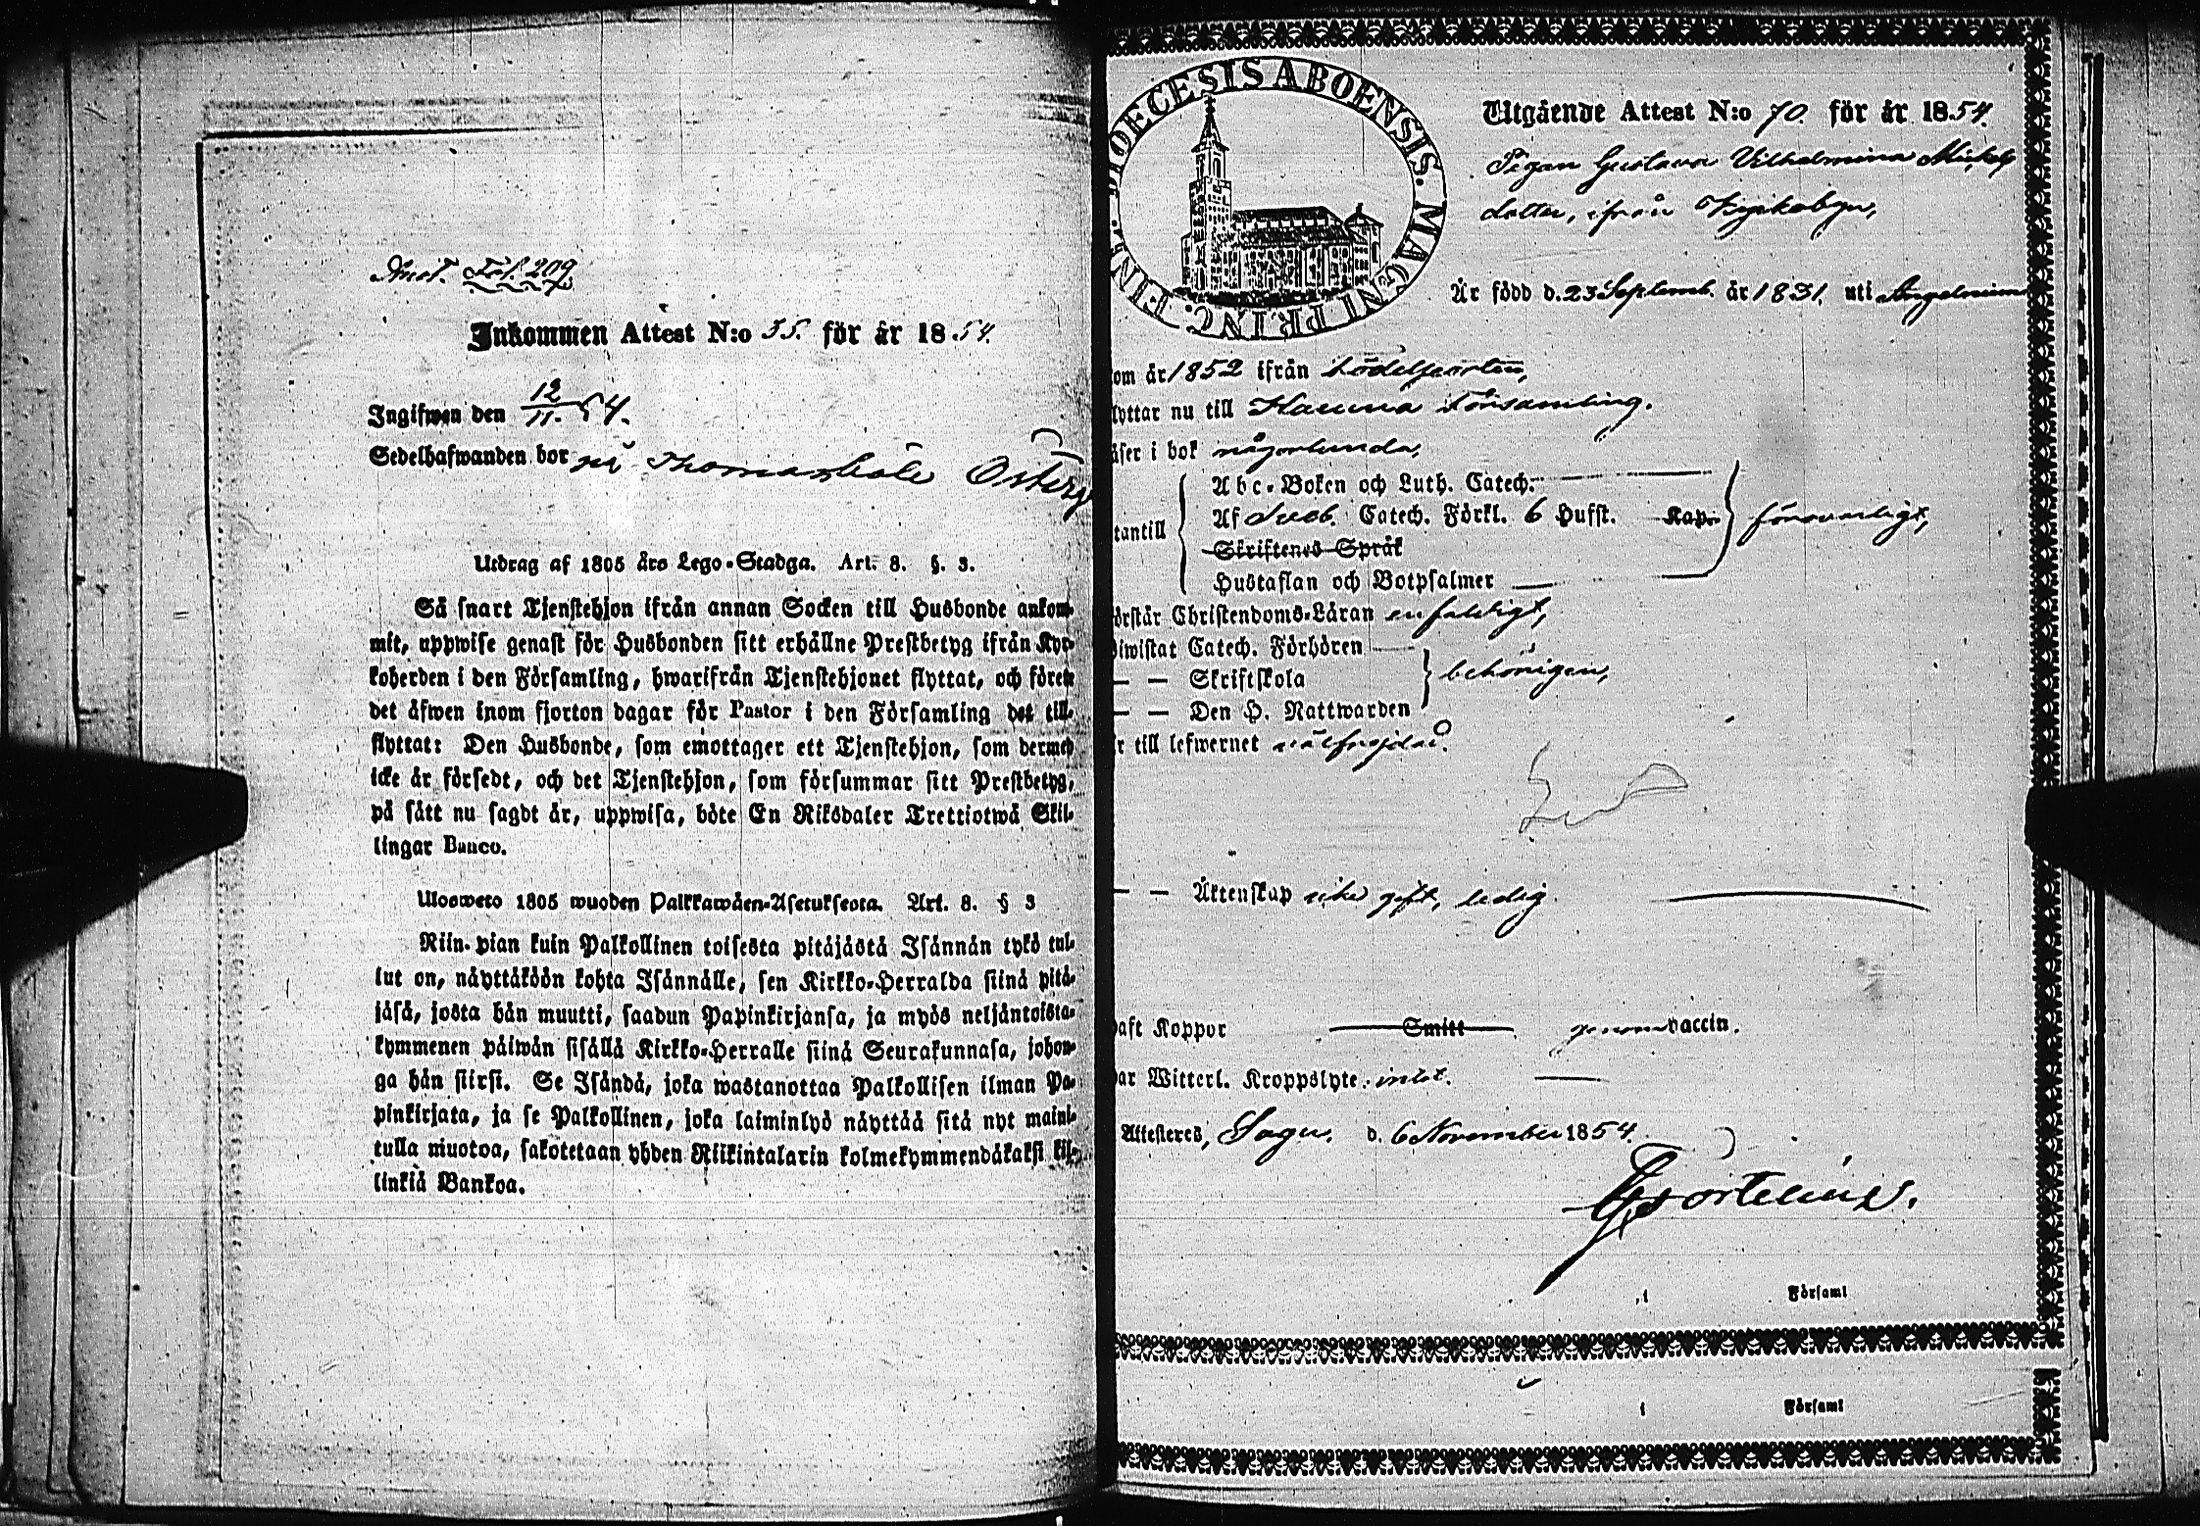 Anot. Fol. 209
Inkommen Attest N:o 35. för år 1854.
Ingifwen den 12/11. 54.
Sedelhafwanden bor på Thomasböle
Utdrag af 1805 års Lego-Stadga. Art. 8. §. 3.
Så snart Tjenstehjon ifrån annan Socken till Husbonde ankom-
mit, uppwise genast för Husbonden sitt erhållne Prestbetyg ifrån Kyr-
koherden i den Församling, hwarifrån Tjenstehjonet flyttat, och förete
det äfwen inom fjorton dagar för Pastor i den Församling det till-
flyttat: Den Husbonde, som emottager ett Tjenstehjon, som dermed
icke är försedt, och det Tjenstehjon, som försummar sitt Prestbetyg,
på sätt nu sagdt är, uppwisa, böte En Riksdaler Trettiotwå Skil-
lingar Banco.
Ulosweto 1805 wuoden Palkkawäen-Asetuksesta. Art. 8. § 3
Niin pian kuin Palkollinen toisesta pitäjästä Isännän tykö tul-
lut on, näyttäköön kohta Isännälle, sen Kirkko-Herralda siinä pitä-
jäsä, josta hän muutti, saadun Papinkirjansa, ja myös neljäntoista-
kymmenen päiwän sisällä Kirkko-Herralle siinä Seurakunnasa, johon-
ga hän siirsi. Se Isändä, joka wastanottaa Palkollisen ilman Pa-
pinkirjata, ja se Palkollinen, joka laiminlyö näyttää sitä nyt maini-
tulla muotoa, sakotetaan yhden Riikintalarin kolmekymmendäkaksi kil-
linkiä Bankoa.
DIOECESIS ABOENSIS. MAGNI PRINC. FINL.
Utgående Attest N:o 70. för år 1854.
Pigan Gustava Vilhelmina Mickels
dotter, ifrån
Är född d. 23 Septemb. år 1831. uti Angelniemi
om år 1852 ifrån
lyttar nu till församling.
äser i bok någorlunda,
tantill
Abc-Boken och Luth. Catech.
Af Sveb. Catech. Förkl. 6 Hufst. Kap.
Skriftenes Språk
Hustaflan och Botpsalmer
försvarligt,
örstår Christendoms-Läran enfaldigt,
iwistat Catech. Förhören
— — Skriftskola
— — Den H. Nattwarden
behörigen,
r till lefwernet välfrejdad.
— — Äktenskap icke gift, ledig.
aft Koppor Smitt genom vaccin.
ar Witterl. Kroppslyte. intet.
Attesteres, Sagu. d. 6 November 1854.
i Församl
i Församl